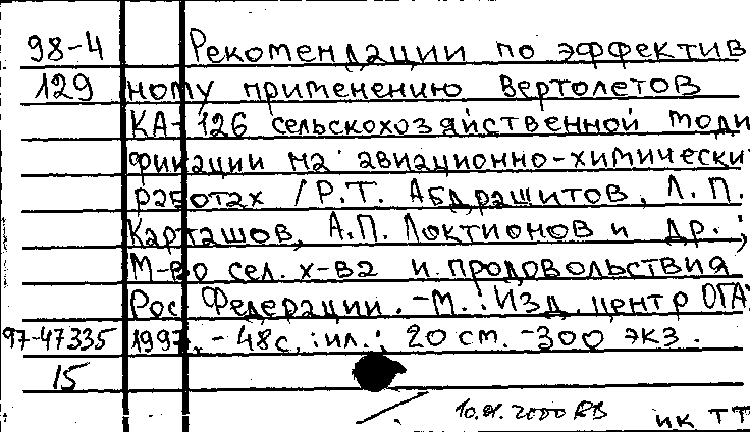 98-4 Рекомендации по эффектив
129 ному применению вертолетов
КА-126 сельскохозяйственной моди
фикации на авиационно-химически
работах / Р.Т. Абдрашитов, Л.П.
Карташов, А.П. Локтионов и др.;
М-во сел. х-ва и продовольствия
Рос. Федерации. -М.: Изд. центр ОГА:
97-47335 1997. - 48с. :ил.; 20 см. -300 экз.
15
ик ТТ